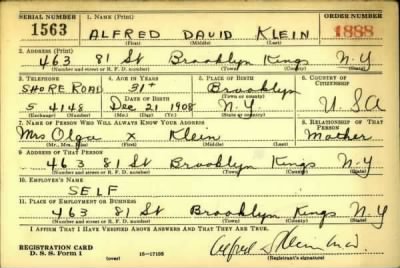 SERIAL NUMBER 1. NAME (Print) ORDER NUMBER
1563 ALFRED DAVID KLEIN 1888
(First) (Middle) (Last)
2. ADDRESS (Print)
463 81 St Brooklyn Kings N-Y
(Number and street or R. F. D. number) (Town) (County) (State)
3. TELEPHONE 4. AGE IN YEARS 5. PLACE OF BIRTH 6. COUNTRY OF CITIZENSHIP
SHORE ROAD 31+ Brooklyn
DATE OF BIRTH (Town or county)
5 4148 Dec 21 1908 N.Y. U.S.A
(Exchange) (Number) (Mo.) (Day) (Yr.) (State or country)
7. NAME OF PERSON WHO WILL ALWAYS KNOW YOUR ADDRESS 8. RELATIONSHIP OF THAT PERSON
Mrs Olga x Klein Mother
(Mr., Mrs., Miss) (First) (Middle) (Last)
9. ADDRESS OF THAT PERSON
463 81 St Brooklyn Kings N-Y
(Number and street or R. F. D. number) (Town) (County) (State)
10. EMPLOYER'S NAME
SELF
11. PLACE OF EMPLOYMENT OR BUSINESS
463 81 St Brooklyn Kings NY
(Number and street or R. F. D. number) (Town) (County) (State)
I AFFIRM THAT I HAVE VERIFIED ABOVE ANSWERS AND THAT THEY ARE TRUE.
REGISTRATION CARD
D. S. S. Form 1 (over) 16-17105 (Registrant's signature)
Alfred D Klein